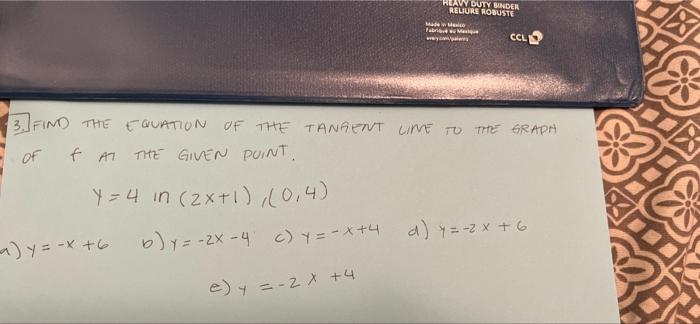 HEAVY DUTY BINDER
RELIURE ROBUSTE
Made in Mexico
Fabriqué au Mexique
CCL
3. FIND THE EQUATION OF THE TANGENT LINE TO THE GRAPH
OF f AT THE GIVEN POINT.
y = 4 ln (2x+1), (0,4)
a) y = -x +6 b) y = -2x -4 c) y = -x +4 d) y = -2x + 6
e) y = -2x +4